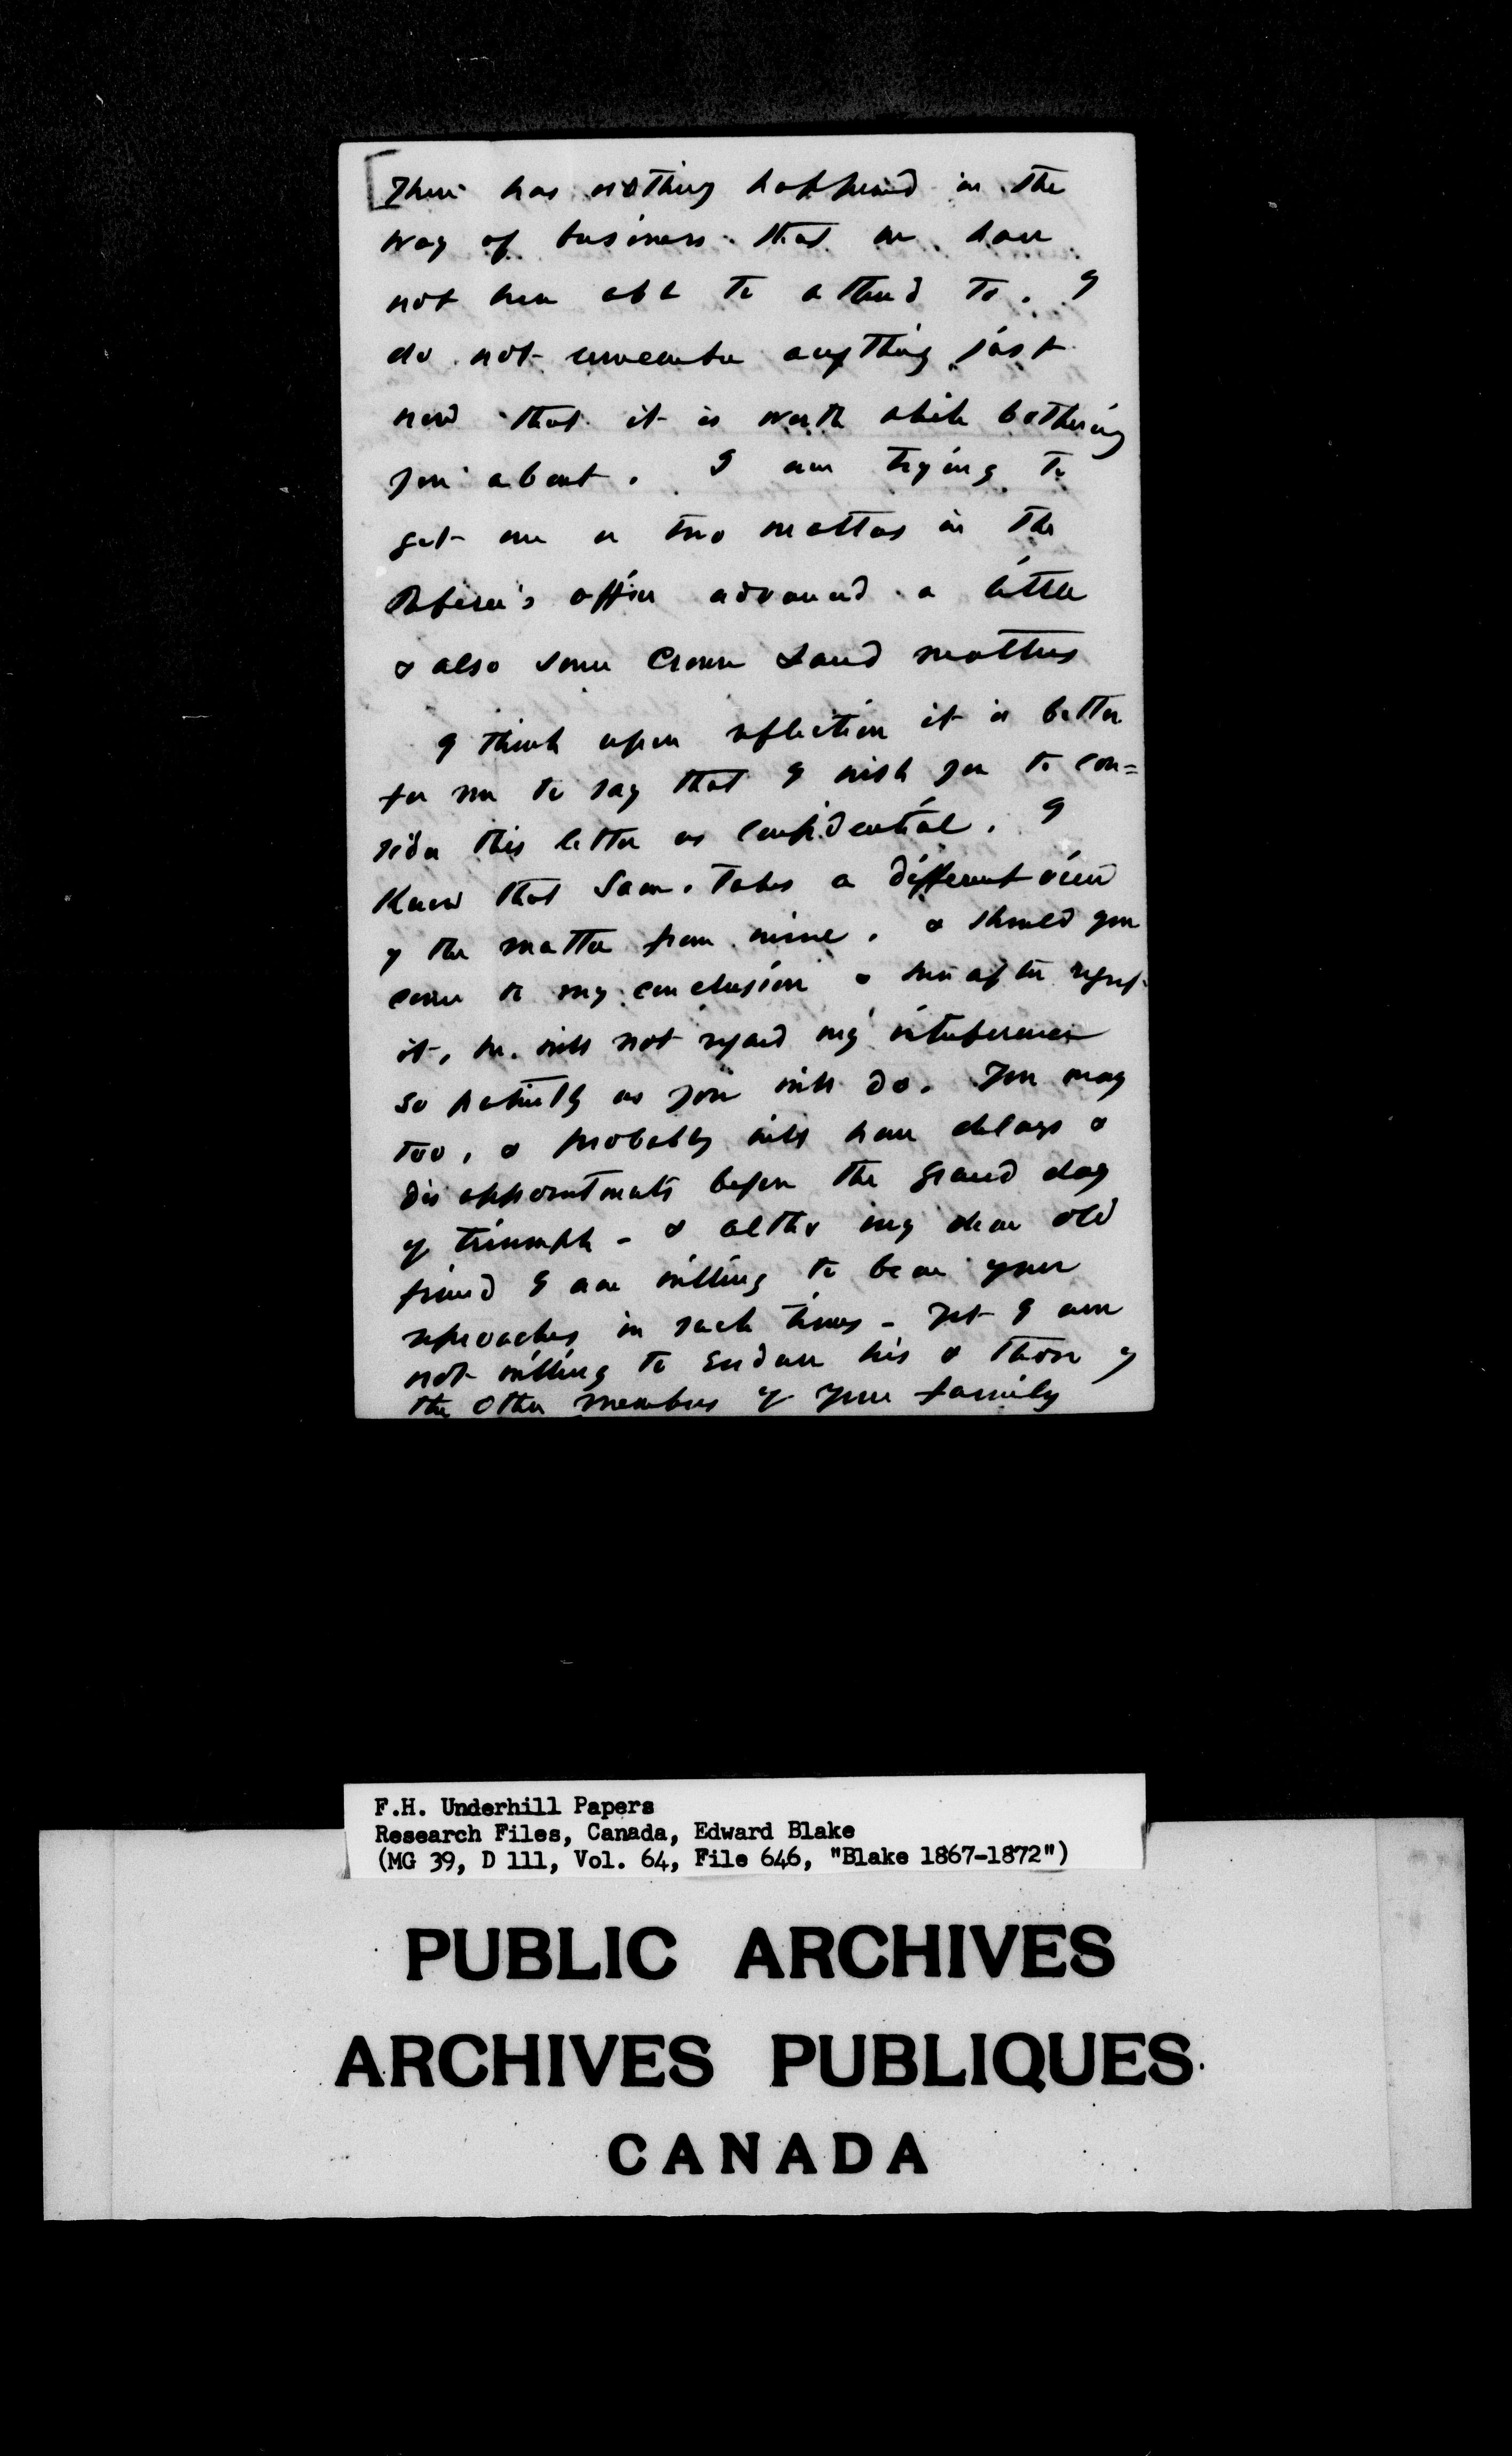 [There has nothing happened in the
way of business that we have
not been able to attend to. I
do not remember anything just
now that it is worth while bothering
you about. I am trying to
get one or two matters in the
Referee's office advanced a little
& also some Crown Land matters
I think upon reflection it is better
for me to say that I wish you to con=
sider this letter as confidential. I
know that Sam. takes a different view
of the matter from mine. & should you
come to my conclusion & hereafter regret
it, he will not regard my interference
so patiently as you will do. You may
too, & probably will have delays &
disappointments before the grand day
of triumph - & altho my dear old
friend I am willing to bear your
reproaches in such times - yet I am
not willing to endure his & those of
the other members of your family
F.H. Underhill Papers
Research Files, Canada, Edward Blake
(MG 39, D 111, Vol. 64, File 646, "Blake 1867-1872")
PUBLIC ARCHIVES
ARCHIVES PUBLIQUES
CANADA